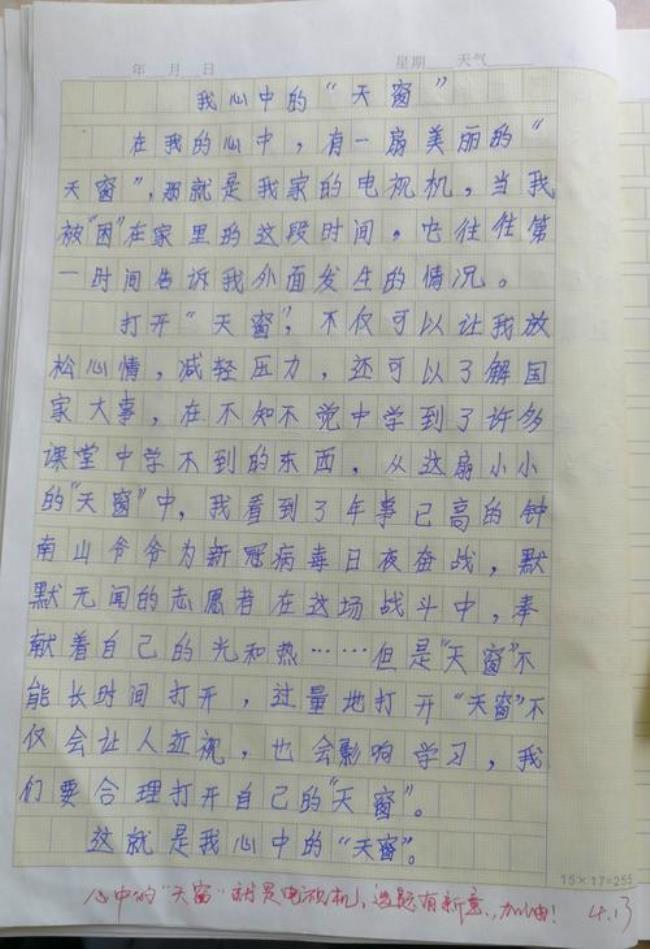 年 月 日 星期 天气
我心中的“天窗”
在我的心中，有一扇美丽的“
天窗”，那就是我家的电视机，当我
被“困”在家里的这段时间，它往往第
一时间告诉我外面发生的情况。
打开“天窗”，不仅可以让我放
松心情，减轻压力，还可以了解国
家大事，在不知不觉中学到了许多
课堂中学不到的东西，从这扇小小
的“天窗”中，我看到了年事已高的钟
南山爷爷为新冠病毒日夜奋战，默
默无闻的志愿者在这场战斗中，奉
献着自己的光和热……但是“天窗”不
能长时间打开，过量地打开“天窗”不
仅会让人近视，也会影响学习，我
们要合理打开自己的“天窗”。
这就是我心中的“天窗”。
15×17=255
心中的“天窗”就是电视机，选题有新意，加油！ 4.13